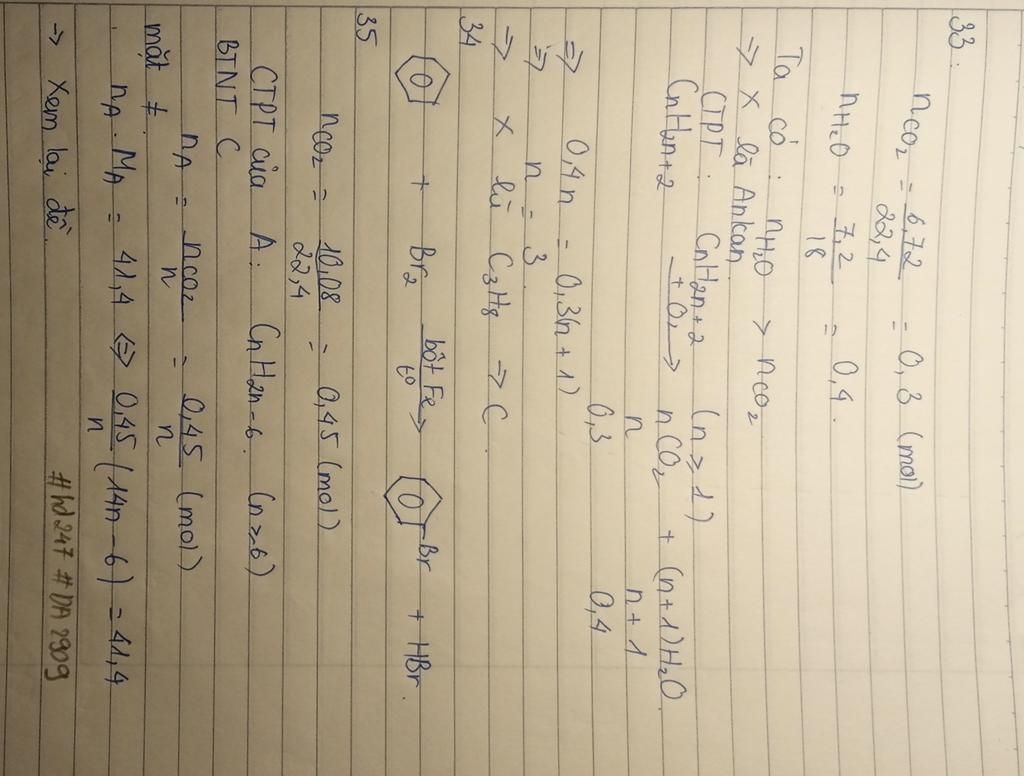 33:
nCO₂ = 6,72/22,4 = 0,3 (mol)
nH₂O = 7,2/18 = 0,4.
Ta có: nH₂O > nCO₂
=> X là Ankan
CTPT: CnH2n+2 (n ≥ 1)
CnH2n+2 +O₂→ nCO₂ + (n+1)H₂O
n n+1
0,3 0,4
=> 0,4n = 0,3(n+1)
=> n = 3.
=> X là C₃H₈ → C.
34
+ Br₂ bột Fe, t° → Br + HBr.
35
nCO₂ = 10,08/22,4 = 0,45 (mol)
CTPT của A: CnH2n-6. (n≥6)
BTNT C
nA = nCO₂/n = 0,45/n (mol)
mặt ≠
nA.MA = 41,4 <=> 0,45/n (14n-6) = 41,4
→ Xem lại đề.
#hd247 #DA2909